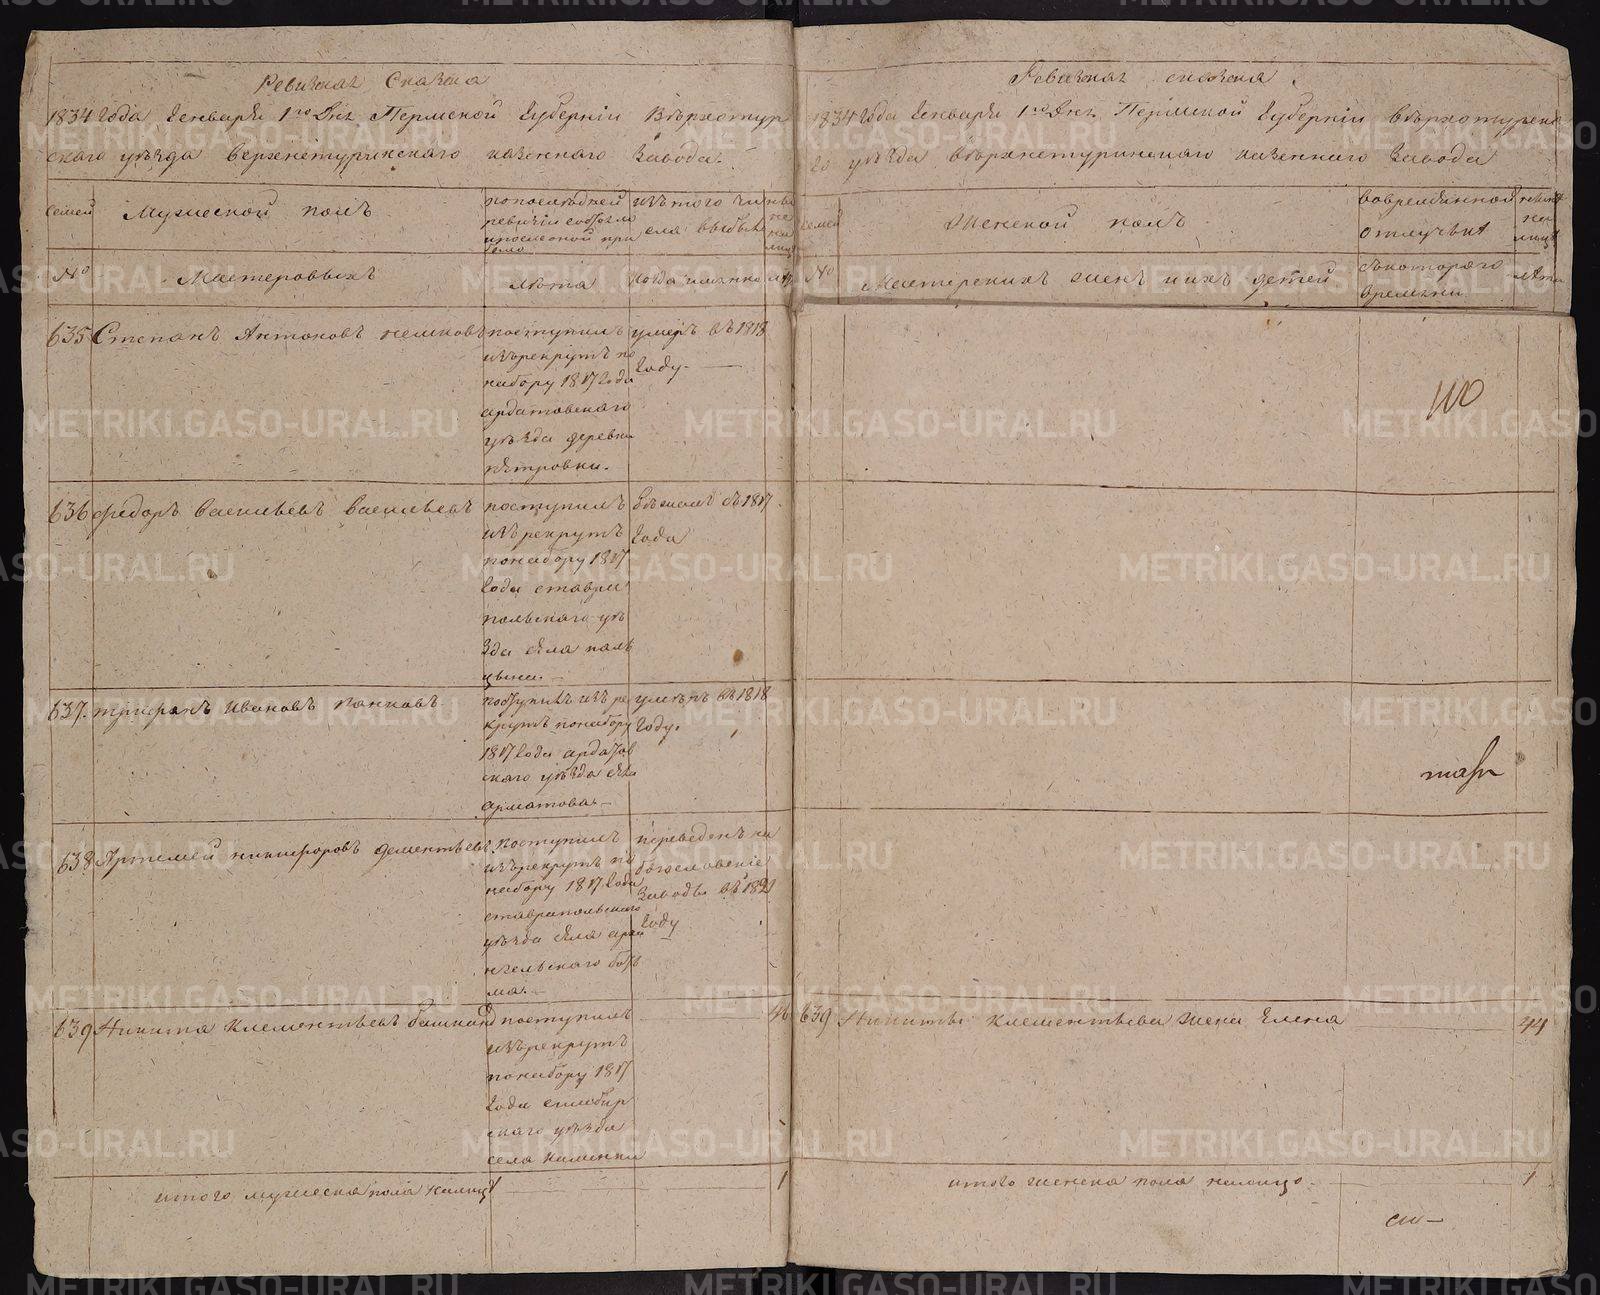 Ревизская Сказка
1834 Года Генваря 1го Дня Пермской Губернии Верхотур
скаго уѣзда Верхнетуринскаго казеннаго завода.
семей
Мужеской полъ
по последней
ревизіи состояло
и после оной при
было
изъ того чи
сла выбыло
№
Мастеровыхъ
лѣта
когда имянно
лѣта
635 Степанъ Антоновъ
поступилъ
изъ рекрутъ по
набору 1817 Года
ардатовскаго
уѣзда деревни
петровки.
умеръ въ 1818
Году.
636 Федоръ Васильевъ Васильевъ
поступилъ
изъ рекрутъ
по набору 1817
Года ставро
польскаго уѣ
зда села
бѣжалъ съ 1817
Года
637. Трифонъ Ивановъ Панковъ
поступилъ изъ ре
крутъ по набору
1817 Года ардатов
скаго уѣзда села
арматова.
умеръ въ 1818
Году.
638 Артемей Никифоровъ Дементьевъ
поступилъ
изъ рекрутъ по
набору 1817 Года
ставропольскаго
уѣзда села арха
нгельскаго
переведенъ на
богословские
заводы въ
Году
639 Никита Клементьевъ
поступилъ
изъ рекрутъ
по набору 1817
Года симбир
скаго уѣзда
села каменки
46
итого мужеска пола налицо
1
Ревизская сказка.
1834 Года Генваря 1го Дня Пермской Губернии верхотурска
го уѣзда верхнетуринскаго казеннаго завода
семей
Женской полъ
во временной
отлучкѣ
ныне
на
лицо
№
Мастерскихъ женъ и ихъ детей
съ котораго
времени
лѣта
639 Никиты Клементьева жена Елена
44
итого женска пола налицо
1